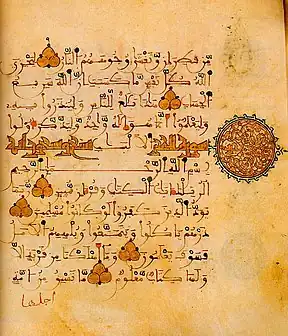 من قطران وتغشى وجوههم النار ليجزي
الله كل نفس ما كسبت إن الله سريع
الحساب هذا بلاغ للناس ولينذروا به
وليعلموا أنما هو إله واحد وليذكر أولوا
الألباب
بسم الله الرحمن الرحيم
الر تلك آيات الكتاب وقرآن مبين ربما
يود الذين كفروا لو كانوا مسلمين
ذرهم يأكلوا ويتمتعوا ويلههم الأمل
فسوف يعلمون وما أهلكنا من قرية إلا
ولها كتاب معلوم ما تسبق من أمة
أجلها